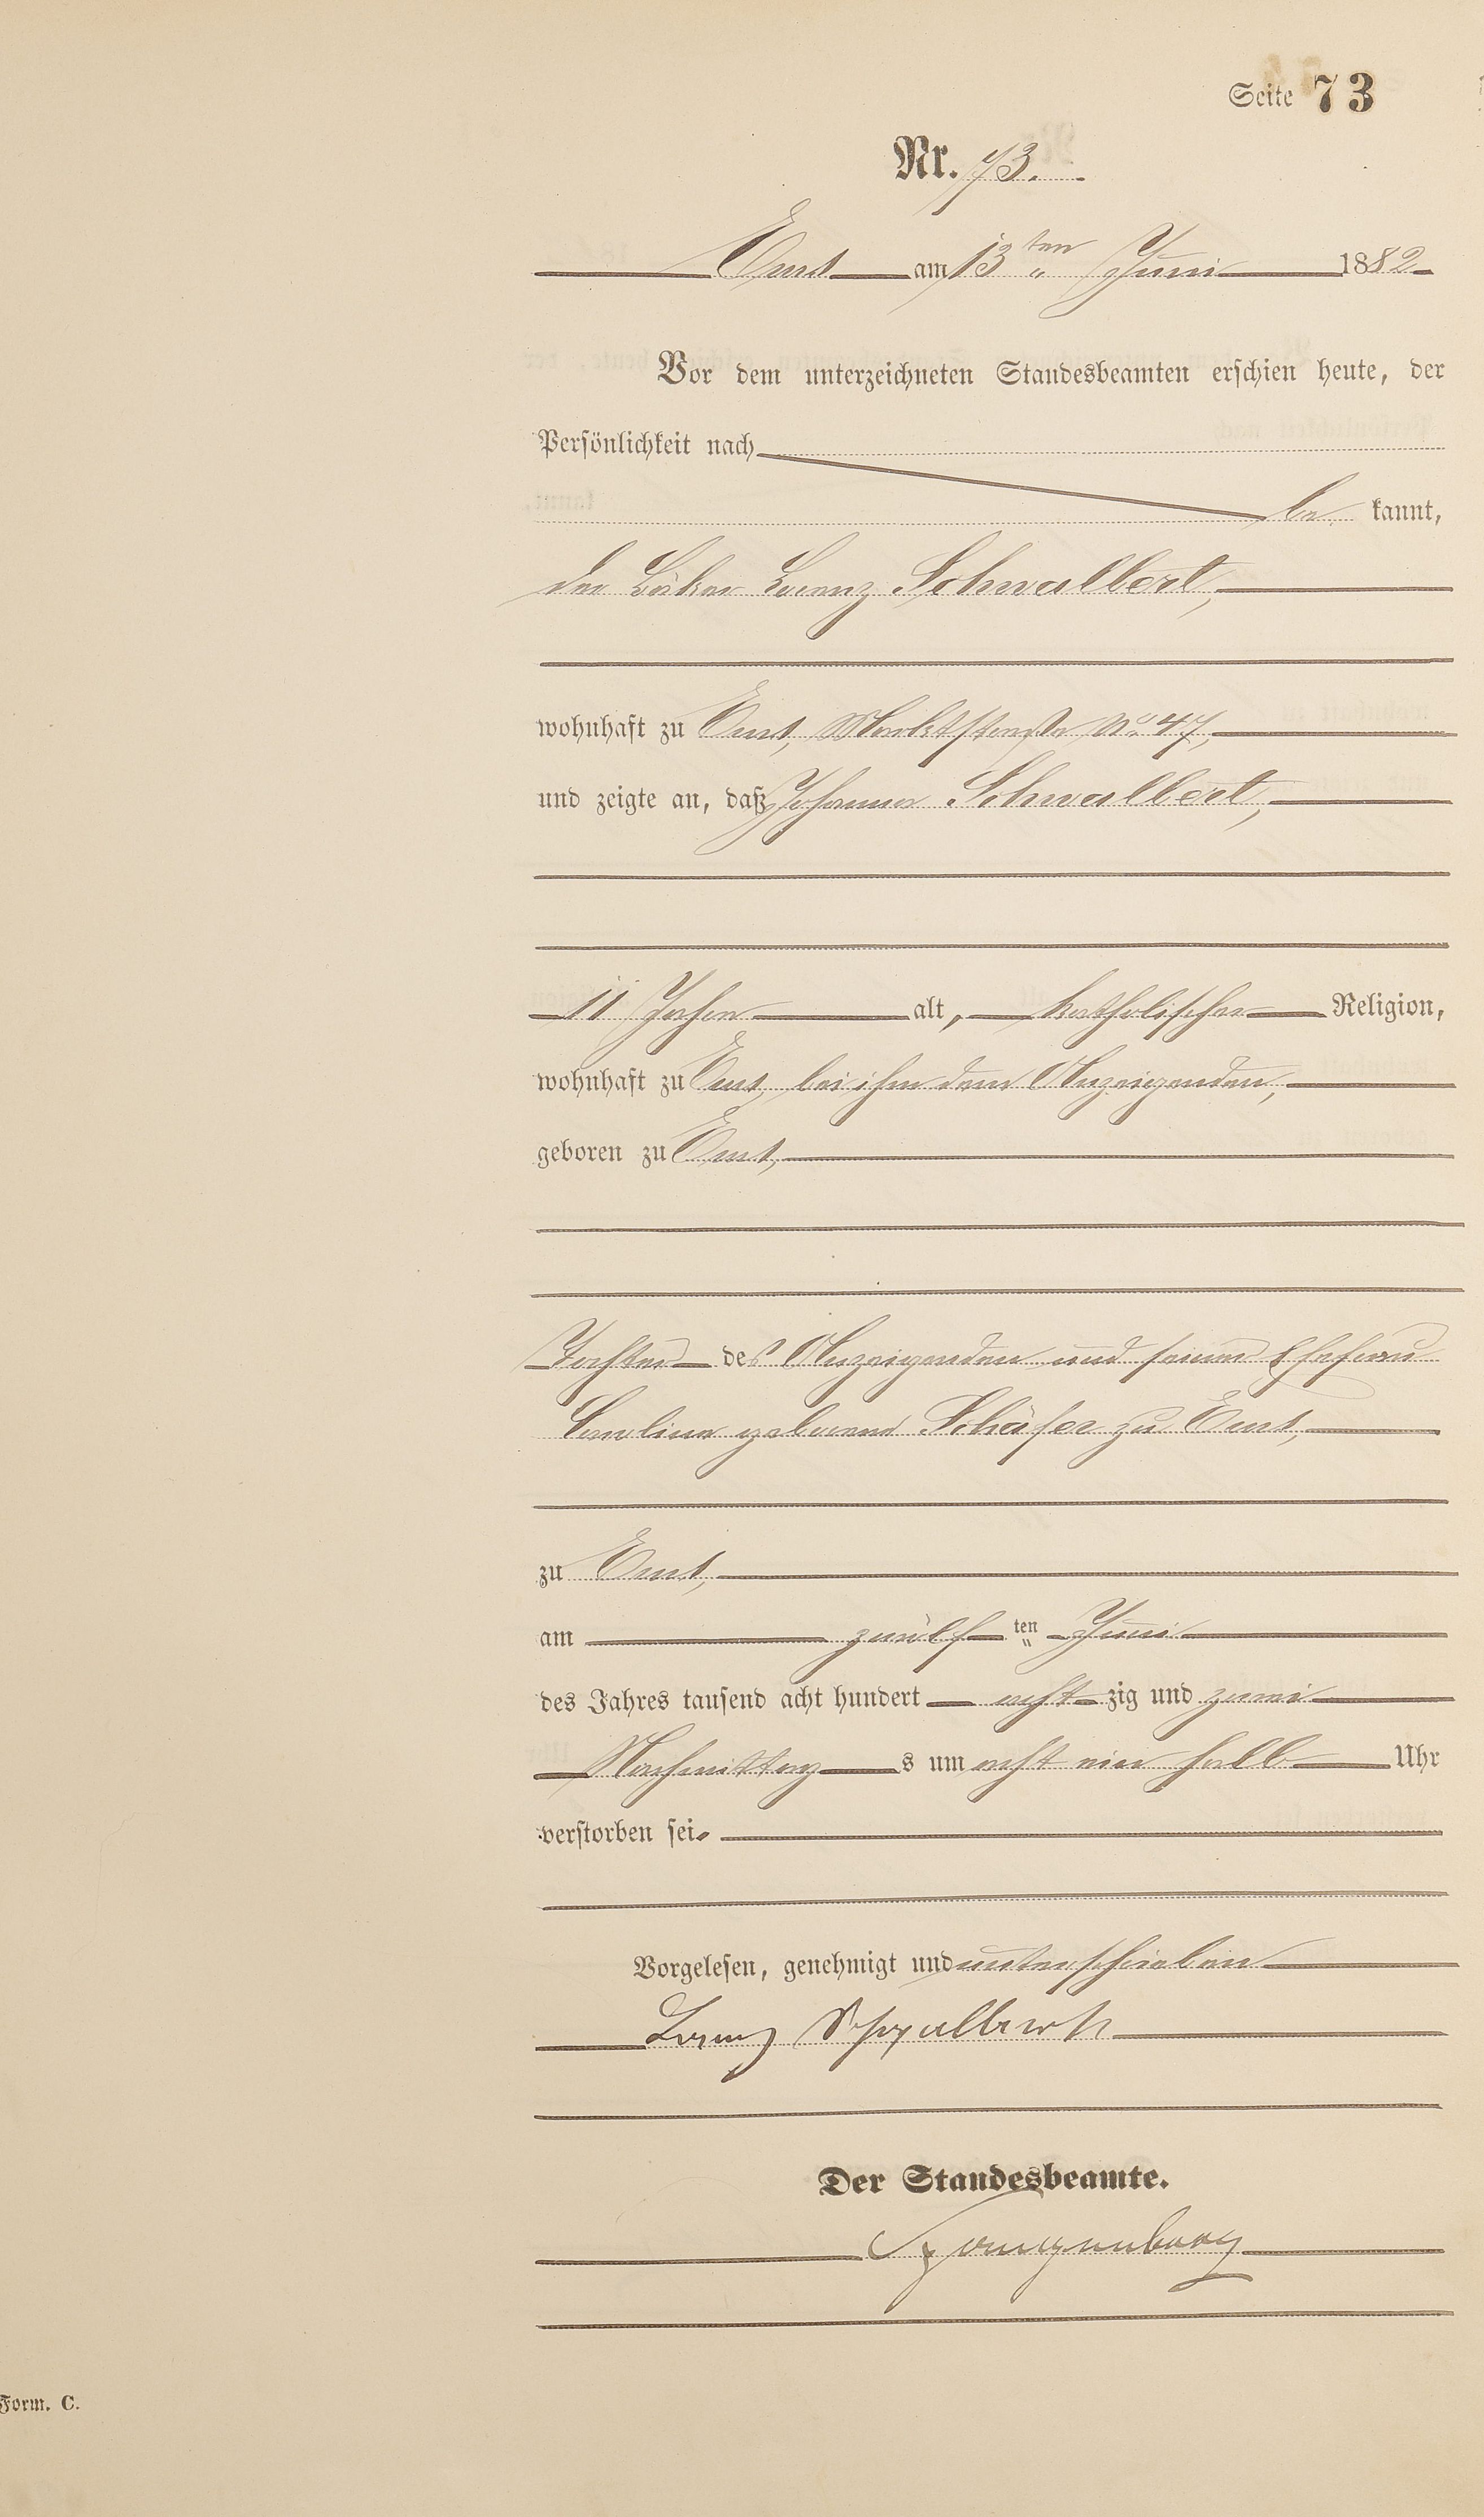 Seite 73
Nr. 73.
Ems am 13ten Juni 1882
Vor dem unterzeichneten Standesbeamten erschien heute, der
Persönlichkeit nach
be kannt,
der Bäker Lorenz Schwalbert,
wohnhaft zu Ems, Marktstraße No. 47,
und zeigte an, daß Johanna Schwalbert,
11 Jahre alt, katholischer Religion,
wohnhaft zu Ems, bei ihm dem Anzeigenden,
geboren zu Ems,
Tochter des Anzeigenden und seiner Ehefrau
geborene Schäfer zu Ems,
zu Ems,
am zwölf ten Juni
des Jahres tausend acht hundert acht zig und zwei
Nachmittag s um acht ein halb Uhr
verstorben sei.
Vorgelesen, genehmigt und unterschrieben
Lorenz Schwalbert
Der Standesbeamte.
Form. C.